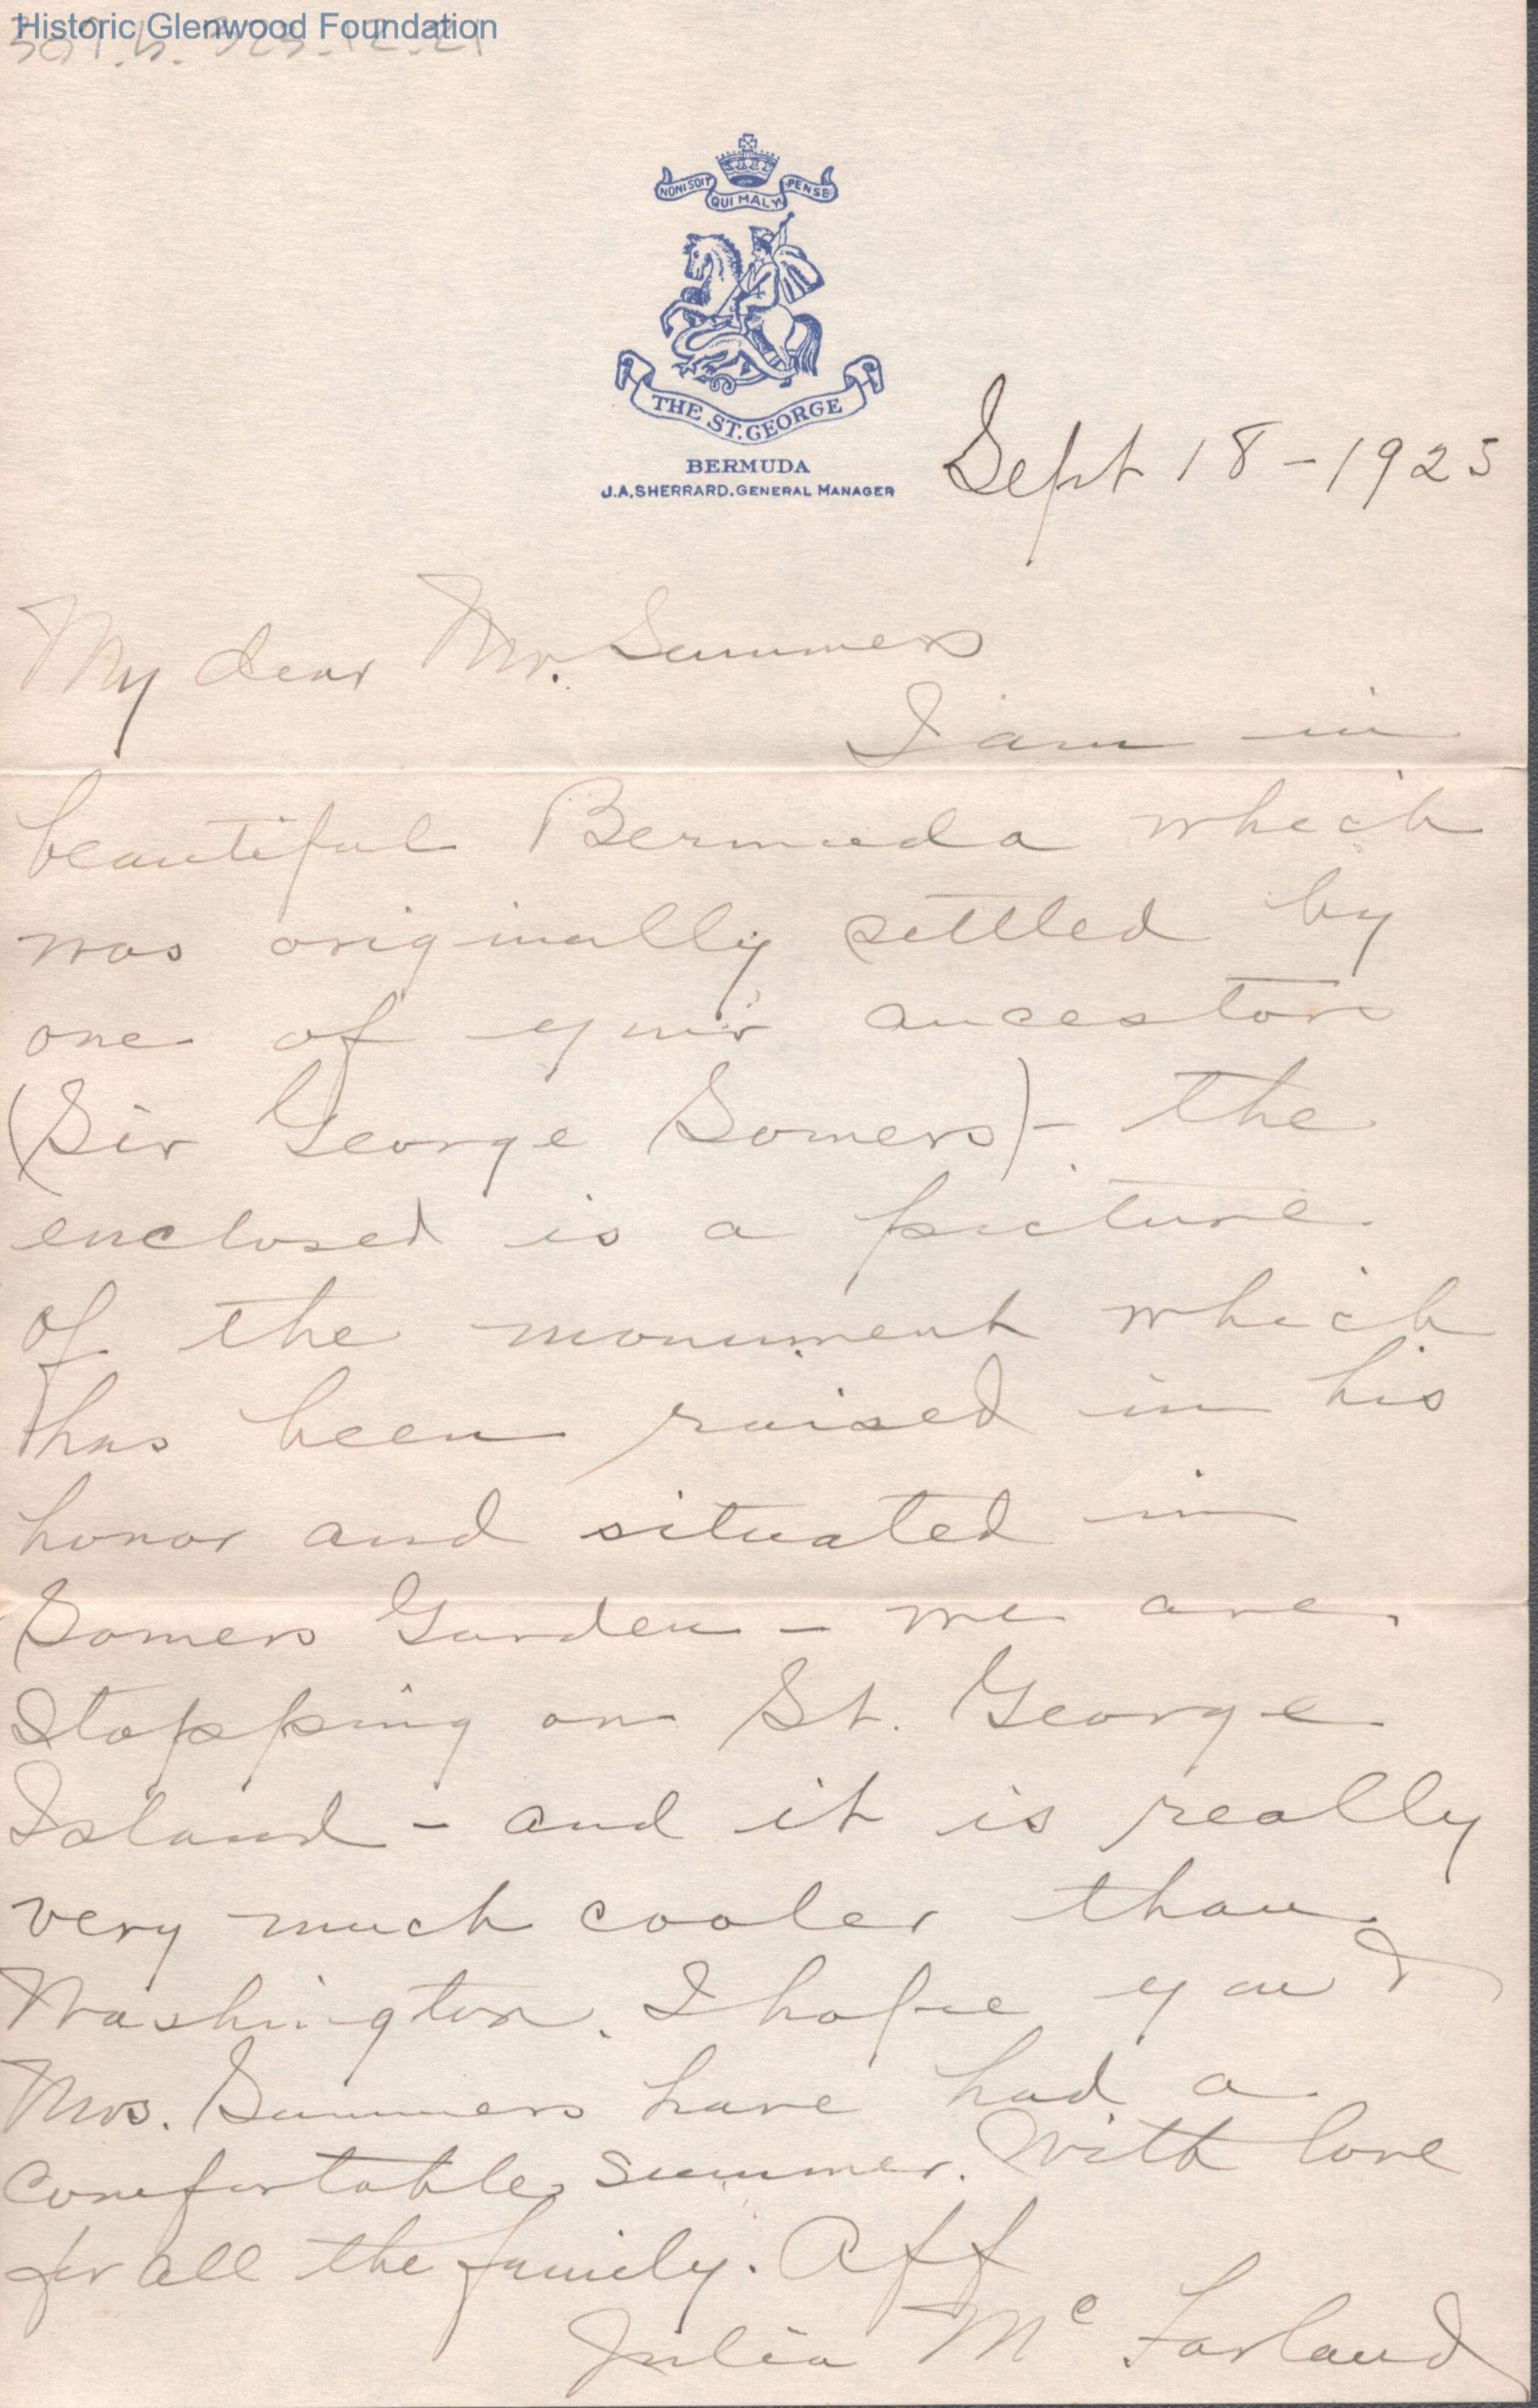 Historic Glenwood Foundation
HONI SOIT QUI MAL Y PENSE
THE ST. GEORGE
BERMUDA
J.A. SHERRARD. GENERAL MANAGER
Sept 18-1925
My dear Mr. Summers
I am in
beautiful Bermuda which
was originally settled by
one of your ancestors
(Sir George Somers) - the
enclosed is a picture
of the monument which
has been raised in his
honor and situated in
Somers Garden - we are
stopping on St. George
Island - and it is really
very much cooler than
Washington. I hope you &
Mrs. Summers have had a
comfortable summer. With love
for all the family. Aff
Julia McFarland